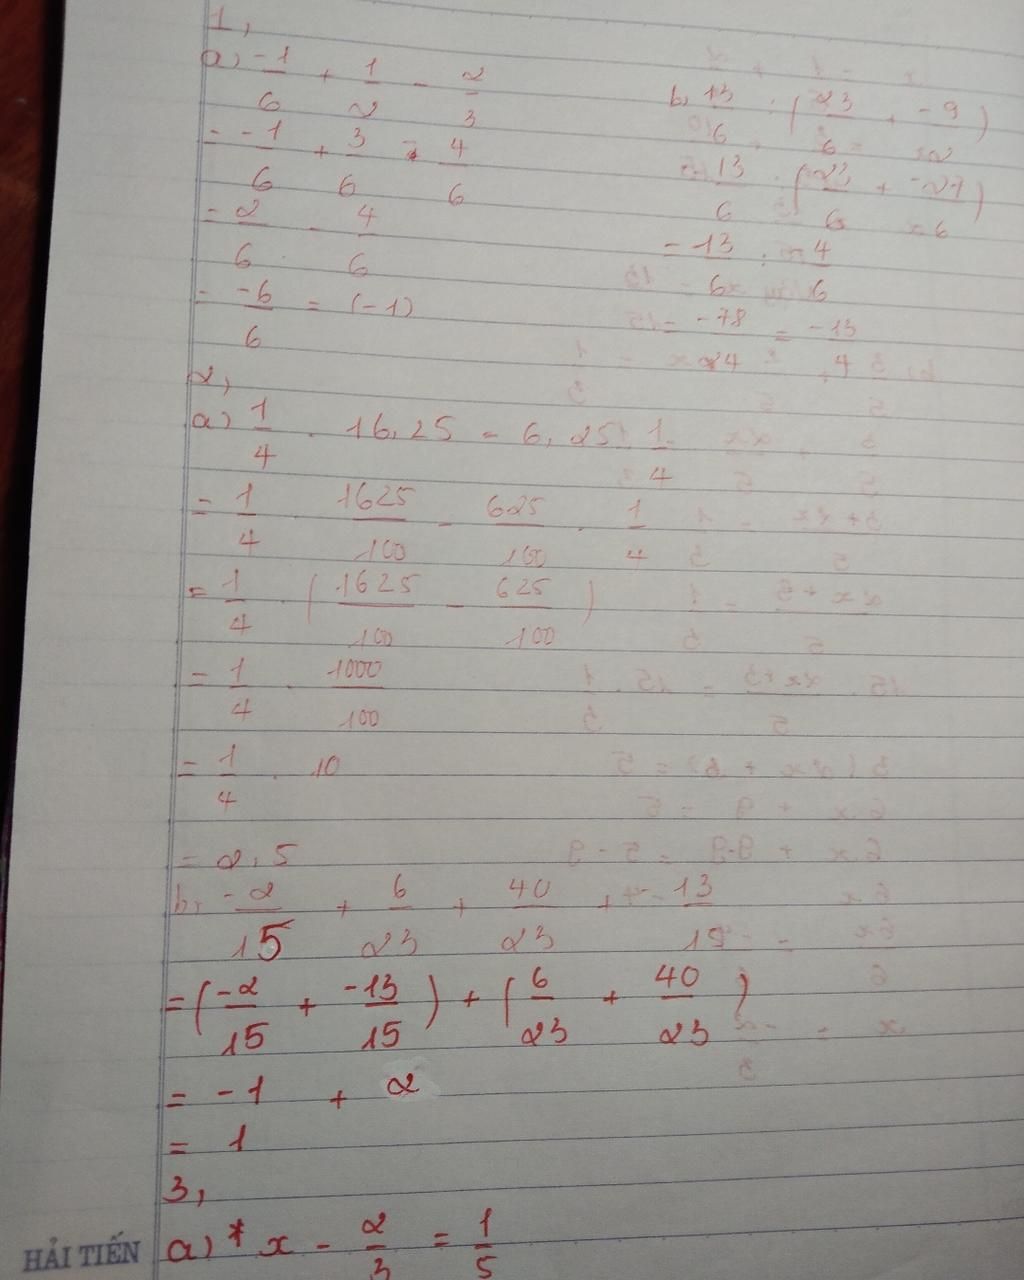 1,
a) -1/6 + 1/2 - 2/3
= -1/6 + 3/6 - 4/6
= 2/6 - 4/6
= -6/6 = (-1)
b, 13/6 : (23/6 + -9/2)
13/6 : (23/6 + -27/6)
= 13/6 : -4/6
= -78/24 = -13/4
2,
a) 1/4 . 16,25 - 6,25 . 1/4
= 1/4 . 1625/100 - 625/100 . 1/4
= 1/4 . (1625/100 - 625/100)
= 1/4 . 1000/100
= 1/4 . 10
= 2,5
b, -2/15 + 6/23 + 40/23 + -13/15
= (-2/15 + -13/15) + (6/23 + 40/23)
= -1 + 2
= 1
3,
a) * x - 2/3 = 1/5
HẢI TIẾN